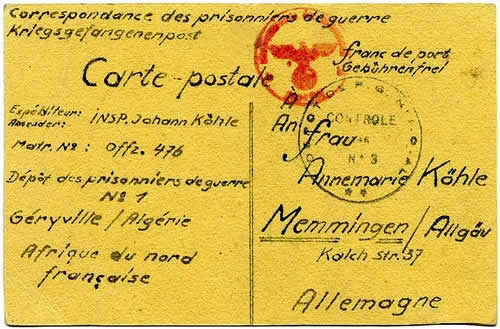 Correspondance des prisonniers de guerre
Kriegsgefangenenpost
franc de port
Gebührenfrei
Carte-postale
Expéditeur:
Absender: INSP. Johann Köhle
Matr. No: Offz. 476
Dépôt des prisonniers de guerre
No 1
Géryville / Algérie
Afrique du nord
française
À
An Frau
Annemarie Köhle
Memmingen / Allgäu
Kalch str. 37
Allemagne
CONTROLE
No 3